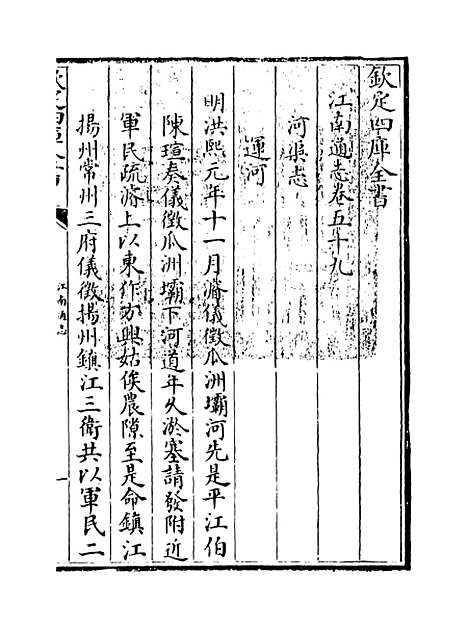 欽定四庫全書
江南通志卷五十九
河渠志
運河
明洪熙元年十一月濬儀徵瓜洲壩河先是平江伯
陳瑄奏儀徵瓜洲壩下河道年久淤塞請發附近
軍民疏濬上以東作方興姑俟農隙至是命鎮江
揚州常州三府儀徵揚州鎮江三衛共以軍民二
江南通志
一